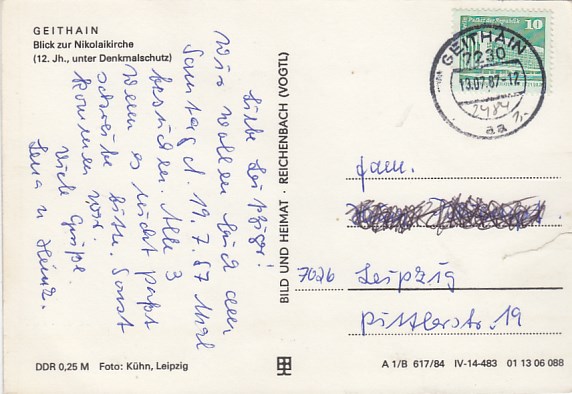 GEITHAIN
Blick zur Nikolaikirche
(12. Jh., unter Denkmalschutz)
Liebe Leipziger!
Wir wollen Euch am
Sonntag d. 19. 7. 87 mal
besuchen. Alle 3
Wenn es nicht paßt
schreibt bitte. Sonst
kommen wir.
Viele Grüße.
Lena u. Heinz.
BILD UND HEIMAT · REICHENBACH (VOGTL)
10
GEITHAIN
7230
13.07.87-12
aa
Fam.
7026 Leipzig
Pittlerstr. 19
DDR 0,25 M Foto: Kühn, Leipzig
A 1/B 617/84 IV-14-483 01 13 06 088